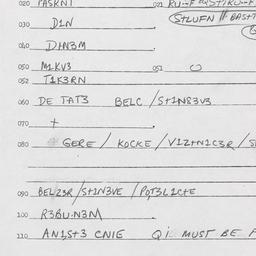 020 PASRNI 021
STLUFN #
030 D1N
040 DHN3M
050 M1KV3 051 O
052 T1K3RN
060 DE TAT3 BELC / S+1N83V3
070 +
080 GERE / KOCKE / V1Z+N1C3R /
090 BELZ3R / S+1N3VE / POT3L1C+E
100 R3BU.N3M
110 AN1S+3 CNIE Q i MUST BE